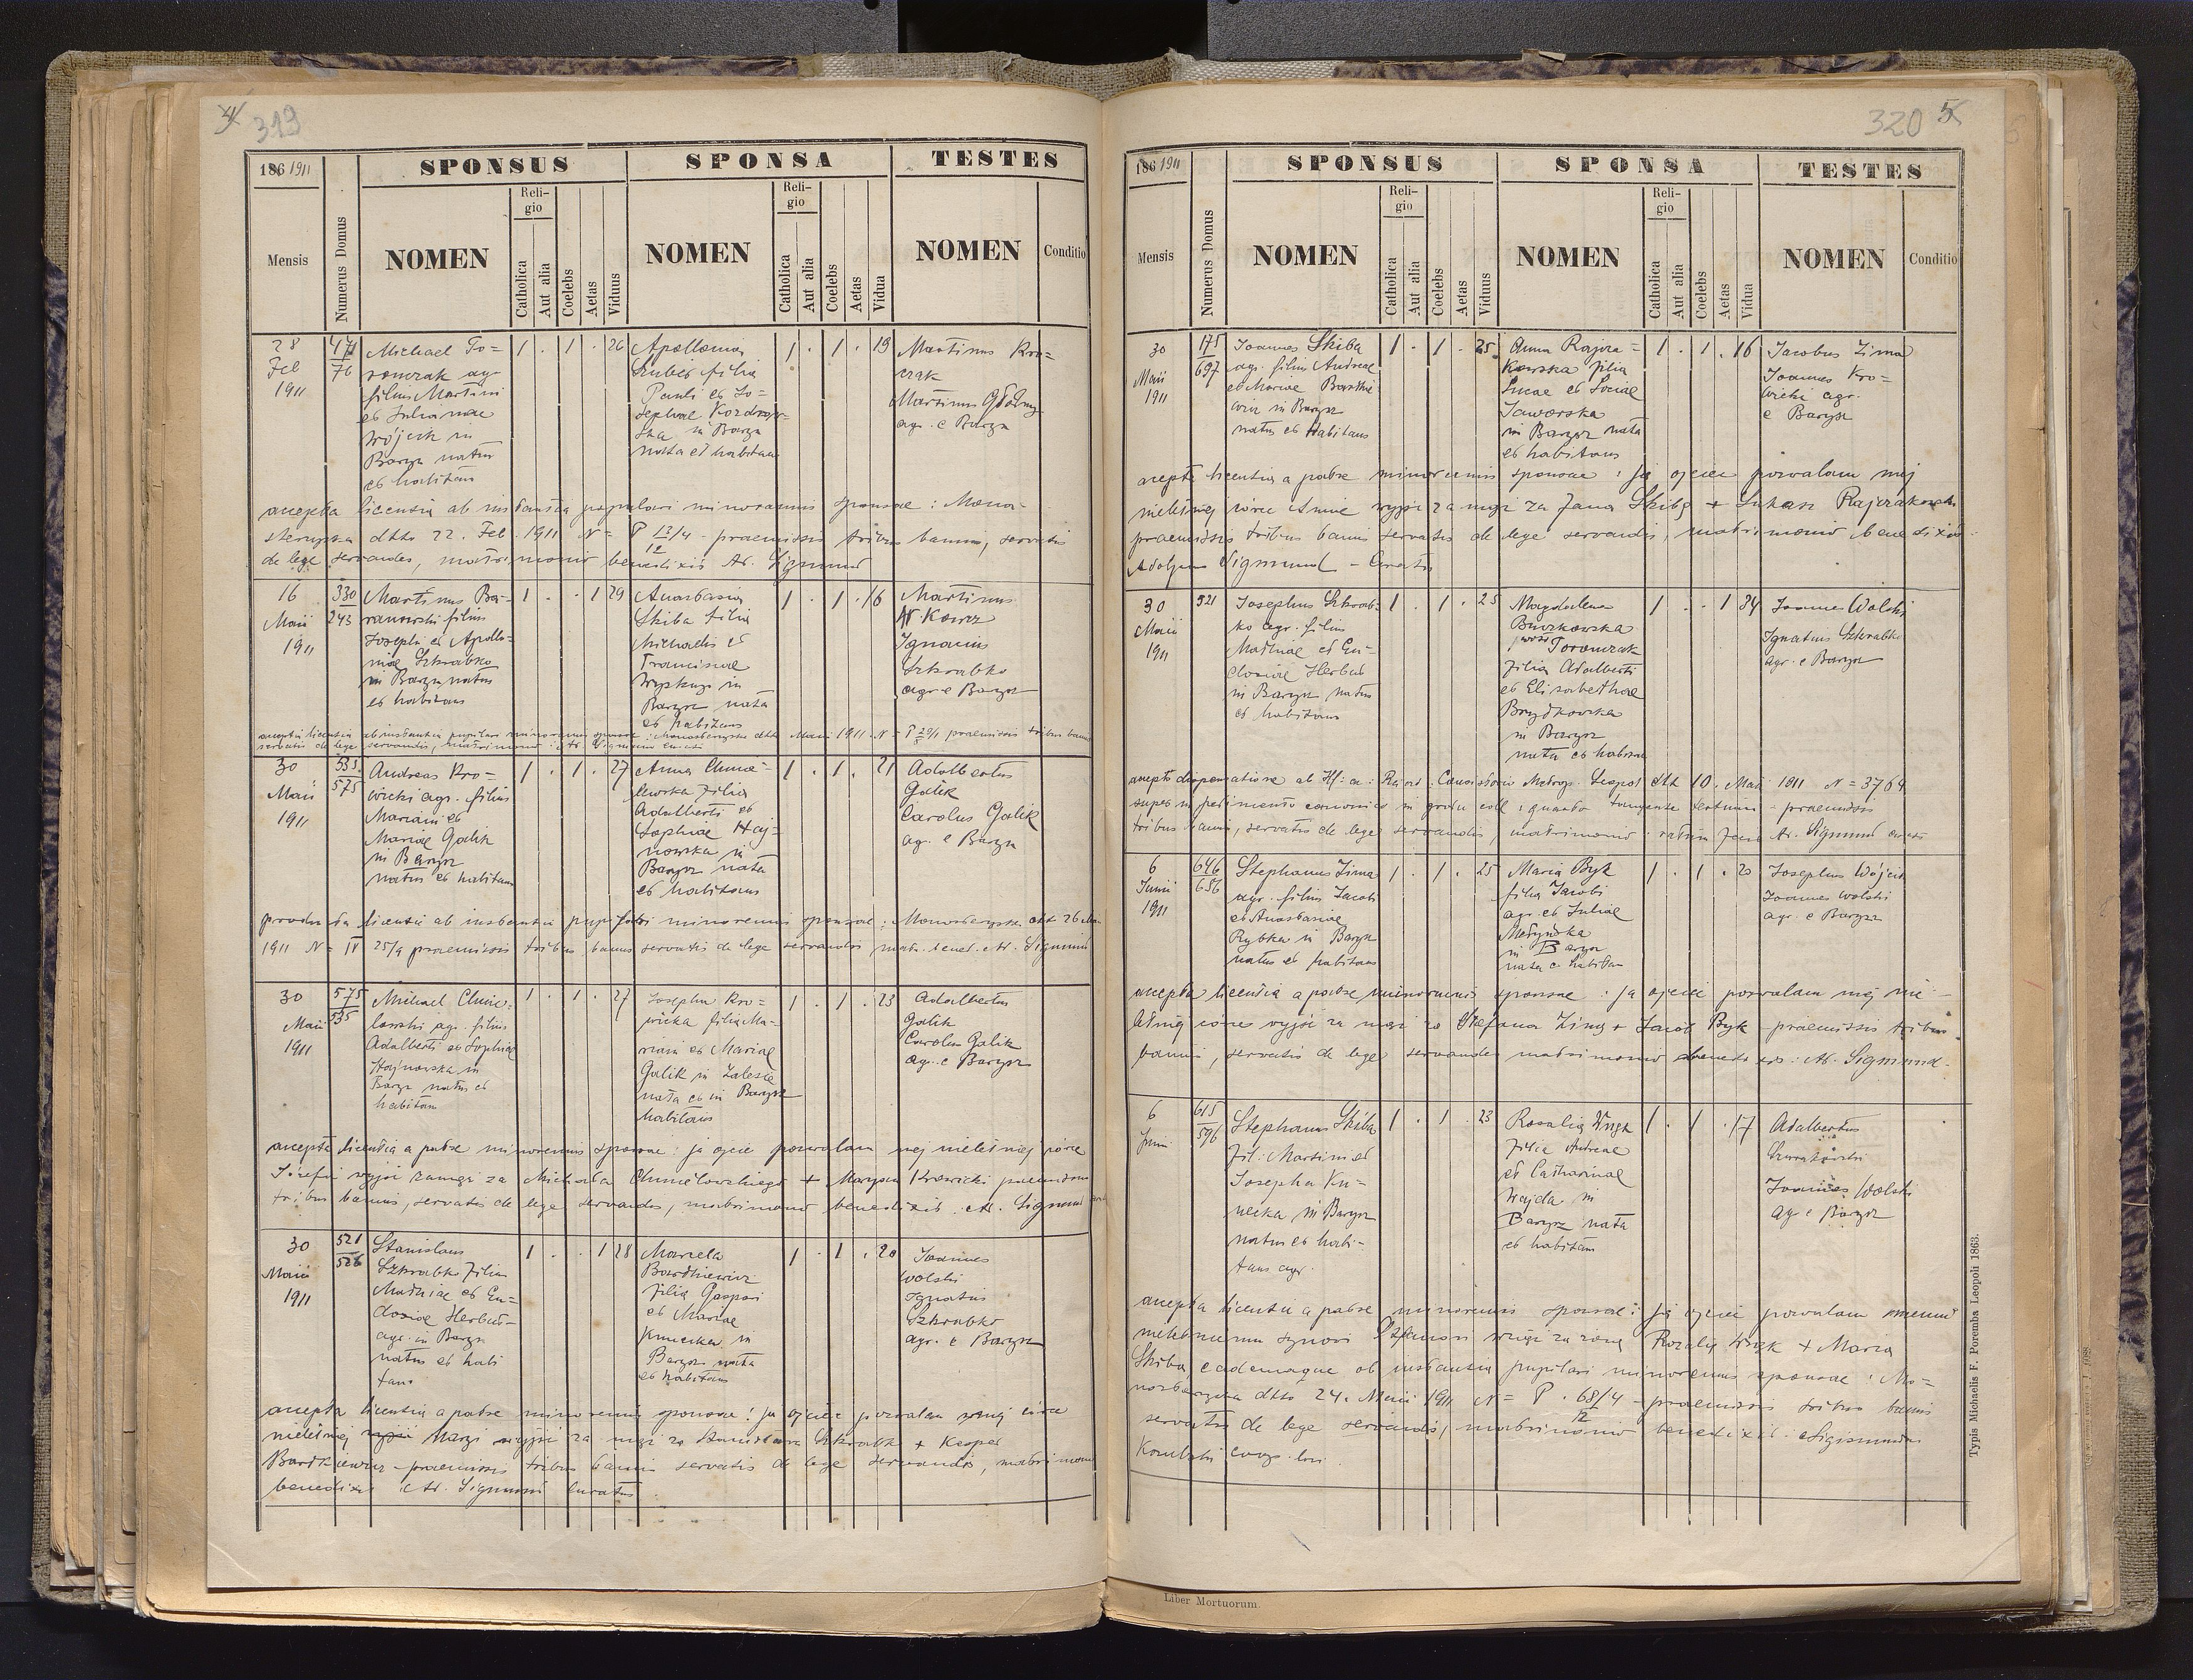 4
319
186 1911
SPONSUS
SPONSA
TESTES
Mensis
Numerus Domus
NOMEN
Religio
Catholica
Aut alia
Coelebs
Aetas
Viduus
NOMEN
Religio
Catholica
Aut alia
Coelebs
Aetas
Vidua
NOMEN
Conditio
28
Fel
1911
76
Michael To=
romczak agr
filius Martini
et Julianae
Wójcik in
Barysz natus
et habitans
1 . 1 . 26
Apollonia
filia
Pauli et Jo=
sephae
in Barysz
nata et habitans
1 . 1 . 19
Martinus
Martinus
agr. e Barysz
accepta licentia ab instantia pupilari minorennis sponsae : Mona=
sterzyska dtto 22. Feb. 1911 N= P 12/4 - praemissis tribus bannis, servatis
de lege servandis, matrimonio benedixit Ad. Sigmund
16
Maii
1911
330
243
Martinus Ba=
ranowski filius
Josephi et Apollo=
niae Szkrabko
in Barysz natus
et habitans
1 . . 1 29
Anastasia
Skiba filia
Michaelis et
Franciscae
in
Barysz nata
et habitans
1 . 1 . 16
Martinus
Ignatius
Szkrabko
agr. e Barysz
accepta licentia ab instantia pupilari minorennis sponsae : Monasterzyska dtto Maii 1911 N= praemissis tribus bannis
servatis de lege servandis, matrimonio
30
Maii
1911
535
575
Andreas Kro=
wicki agr. filius
Mariani et
Mariae Galik
in Barysz
natus et habitans
1 . 1 . 27
Anna Chmie=
lewska filia
Adalberti et
Sophiae Haj=
nowska in
Barysz nata
et habitans
1 . 1 . 21
Adalbertus
Galik
Carolus Galik
ag. e Barysz
licentia ab instantia pupilari minorennis sponsae : Monasterzyska dtto 26 Mai
1911 N= IV 25/9 praemissis tribus bannis servatis de lege servandis matr. bened. Ad. Sigmund
30
Maii
1911
575
535
Michael Chmie=
lowski agr. filius
Adalberti et Sophiae
Hajnowska in
Barysz natus et
habitans
1 . 1 . 27
Josepha Kro=
wicka filia Ma=
riani et Mariae
Galik in Zalesie
nata et in Barysz
habitans
1 . 1 . 23
Adalbertus
Galik
Carolus Galik
ag. e Barysz
accepta licentia a patre minorennis sponsae : ja ojciec pozwalam mej nieletniej córce
Józefie wyjść zamąż za Michała Chmielowskiego + Maryan Krowicki praemissis
tribus bannis, servatis de lege servandis, matrimonio benedixit Ad. Sigmund
30
Maii
1911
521
526
Stanislaus
Szkrabko filius
Mathiae et Eu=
doxiae Herbut
agr. in Barysz
natus et habi
tans
1 . . 1 28
Marcela
Bardkiewicz
filia Gaspari
et Mariae
Kunicka in
Barysz nata
et habitans
1 . 1 . 20
Joannes
Wolski
Ignatius
Szkrabko
agr. e Barysz
accepta licentia a patre minorennis sponsae : ja ojciec pozwalam mej córce
nieletniej wyjść za mąż za Stanisława Szkrabko + Kasper
Bardkiewicz - praemissis tribus bannis servatis de lege servandis, matrimonio
benedixit Ad. Sigmund Curatus
320
5
186 1911
SPONSUS
SPONSA
TESTES
Mensis
Numerus Domus
NOMEN
Religio
Catholica
Aut alia
Coelebs
Aetas
Viduus
NOMEN
Religio
Catholica
Aut alia
Coelebs
Aetas
Vidua
NOMEN
Conditio
30
Maii
1911
175
697
Joannes Skiba
agr. filius Andreae
et Mariae Bardkie
wicz in Barysz
natus et habitans
1 . 1 . 25
Anna Rajcza=
kowska filia
Lucae et Luciae
Jaworska
in Barysz nata
et habitans
1 . 1 . 16
Jacobus Zima
Joannes Kro=
wicki agr.
e Barysz
accepta licentia a patre minorennis sponsae : ja ojciec pozwalam mej
nieletniej córce Annie wyjść za mąż za Jana Skibę + Łukasz Rajczakowski
praemissis tribus bannis servatis de lege servandis, matrimonio benedixit
Adolfus Sigmund - Curatus
30
Maii
1911
521
Josephus Szkrab=
ko agr. filius
Mathiae et Eu=
doxiae Herbut
in Barysz natus
et habitans
1 . 1 . 25
Magdalena
Buczkowska
Toromczak
filia Adalberti
et Elisabethae
Brydkowska
in Barysz
nata et habitans
1 . . 1 34
Joannes Wolski
Ignatius Szkrabko
agr. e Barysz
accepta dispensatione ab Consistorio Metrop. Leopol dtto 10. Maii 1911 N= 3764
super impedimento canonico in gradu coll : quarto tangente tertium - praemissis
tribus bannis, servatis de lege servandis, matrimonio Ad. Sigmund
6
Junii
1911
646
656
Stephanus Zima
agr. filius Jacobi
et Anastasiae
Rybka in Barysz
natus et habitans
1 . 1 . 25
Maria Byk
filia Jacobi
agr. et Juliae
in Barysz
nata e. habitan
1 . 1 . 20
Josephus Wójcik
Joannes Wolski
agr. e Barysz
accepta licentia a patre minorennis sponsae : ja ojciec pozwalam mej nie=
letniej córce wyjść za mąż za Stefana Zimę + Jacób Byk - praemissis tribus
bannis, servatis de lege servandis matrimonio Ad. Sigmund.
6
Junii
615
596
Stephanus Skiba
fil: Martini et
Josepha Ku=
nicka in Barysz
natus et habi=
tans agr.
1 . 1 . 23
Rosalia
filia Andreae
et Catharinae
Wajda in
Barysz nata
et habitans
1 . 1 . 17
Adalbertus
Joannes Wolski
ag e Barysz
accepta licentia a patre minorennis sponsae : ja ojciec pozwalam memu
nieletniemu synowi wziąć za żonę Rozalię + Maria
Skiba, eademque ab instantia pupilari minorennis sponsae : Mo=
nasterzyska dtto 24. Maii 1911 N= P. 68/4 - praemissis tribus bannis
servatis de lege servandis, matrimonio benedixit
coop. loci
Typis Michaelis F. Poremba Leopoli 1863.
Liber Mortuorum.